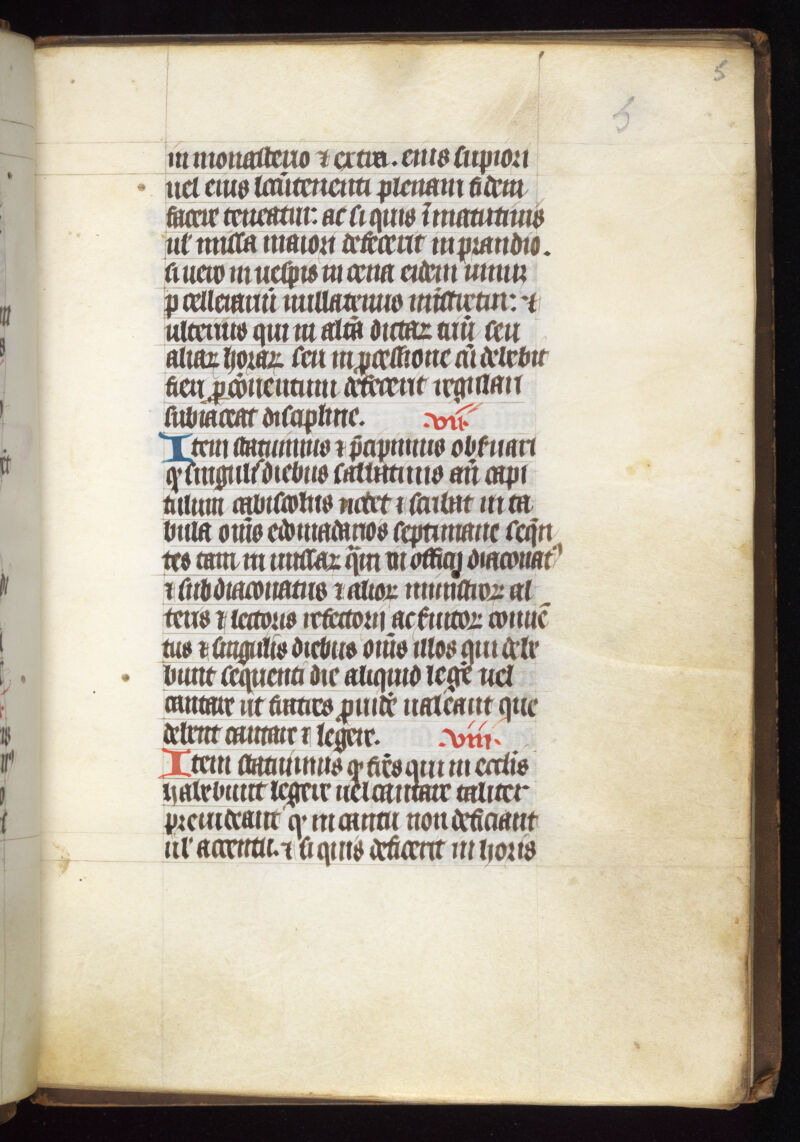 5
5
in monasterio ⁊ extra. eius supiori
uel eius locūtenenti plenam fidem
facere teneatur: ac si quis ī matutinis
ul' missa maiori defecerit in prandio.
si uero in uespis in cena eidem uinū
p cellerariū nullatenus mīstretur: ⁊
ulterius qui in altā dictaꝝ
aliaꝝ horaꝝ seu in ꝓcessione cū debebit
fieri ꝑ cōuentum defecerit regulari
subiaceat discipline. .vii.
Item statuimus ⁊ p̄cipimus obs̄uari
ꝙ singulis diebus sabbatinis añ capi
tulum cabiscolus notet ⁊ scribat in ta
bula om̄s edomadarios septimane seq̄n
tes tam in missaꝝ q̄m in officij diaconat᾽
⁊ subdiaconatus ⁊ alioꝝ ministroꝝ al
teris ⁊ lectoris refectorij ac s̄uitoꝝ conuē
tus ⁊ singulis diebus om̄s illos qui debe
bunt sequenti die aliquid legē uel
cantare ut fratres ꝓuidē ualeant que
debent cantare ⁊ legere. .viii.
Item statuimus ꝙ frēs qui in ecclīs
habebunt legere uel cantare taliter
preuideant ꝙ in cantu non deficiant
ul' accentu. ⁊ si quis defecerit in horis